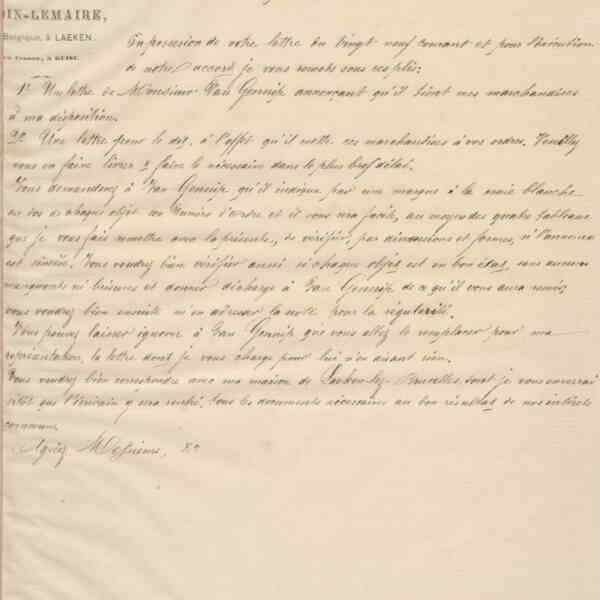 OIN-LEMAIRE,
Belgique, à LAEKEN.
En possession de votre lettre du vingt neuf courant et pour l'exécution
en France, à GUISE.
de notre accord je vous remets sous ces plis:
1º Une lettre de Monsieur Van Gennip annonçant qu'il tient mes marchandises
à ma disposition.
2º Une lettre pour le dit, à l'effet qu'il mette ces marchandises à vos ordres. Veuillez
vous en faire livrer & faire le nécessaire dans le plus bref délai.
Vous demanderez à Van Gennip qu'il indique par une marque à la craie blanche
au dos de chaque objet un numéro d'ordre et il vous sera facile, au moyen des quatre tableaux
que je vous fais remettre avec la présente, de vérifier, par dimensions et formes, si l'annonce
est sincère. Vous voudrez bien vérifier aussi si chaque objet est en bon état, sans aucuns
manquants ni brisures et donner décharge à Van Gennip de ce qu'il vous aura remis,
vous voudrez bien ensuite m'en adresser la note pour la régularité.
Vous pouvez laisser ignorer à Van Gennip que vous allez le remplacer pour ma
représentation, la lettre dont je vous charge pour lui n'en disant rien.
Vous voudrez bien correspondre avec ma maison de Laeken-lez-Bruxelles, dont je vous enverrai
sitôt que l'écrivain y sera rentré, tous les documents nécessaires au bon résultat de nos intérêts
communs.
Agréez, Messieurs, &a